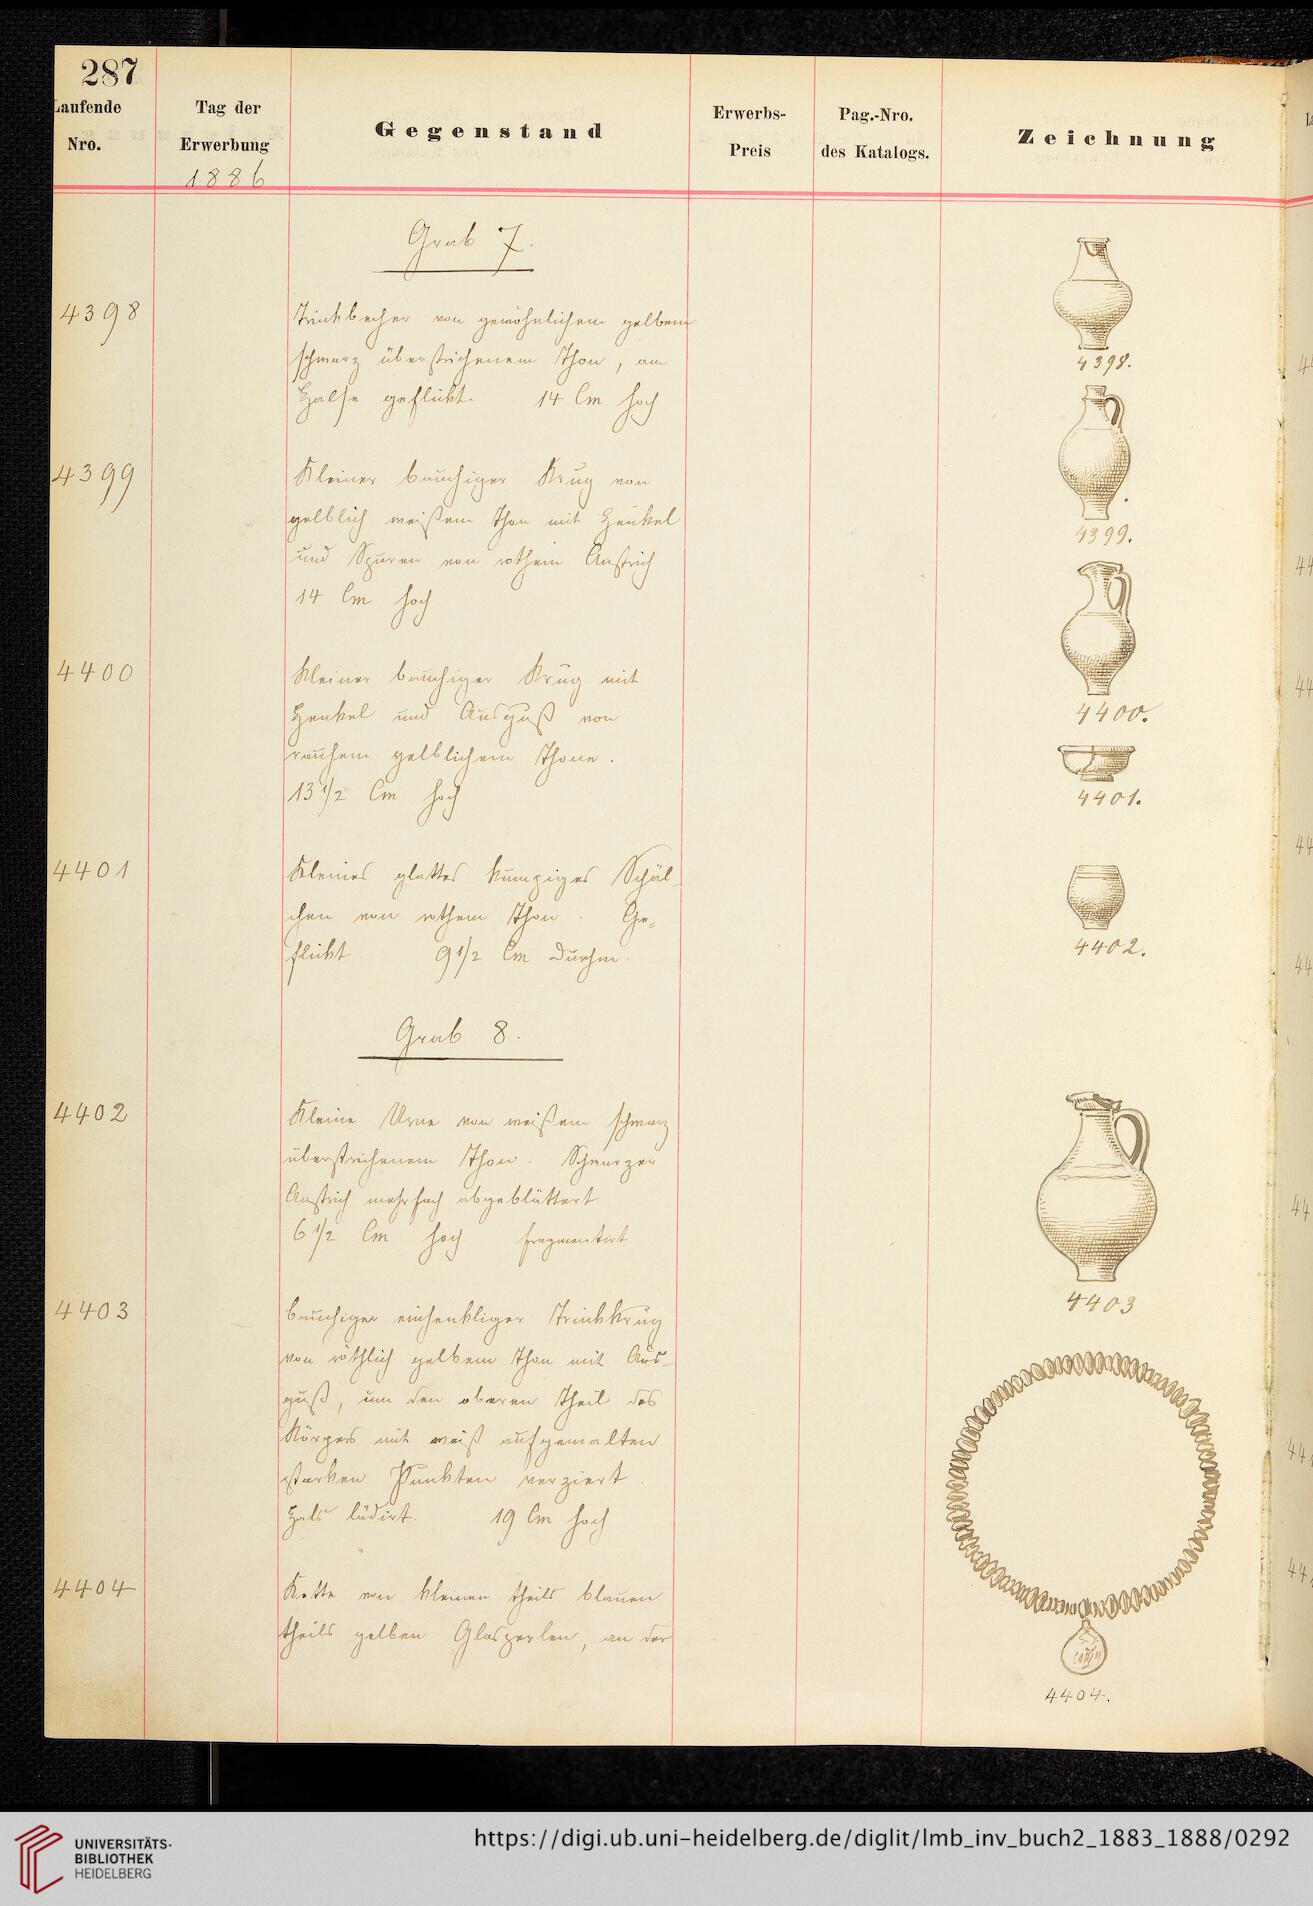 287
Laufende
Nro.
Tag der
Erwerbung
1886
Gegenstand
Erwerbs-
Preis
Pag.-Nro.
des Katalogs.
Zeichnung
Grab 7.
4398
Trinkbecher von gewöhnlichem gelbem
schwarz überstrichenem Thon, am
Halse geflickt. 14 Cm hoch
4399
Kleiner bauchiger Krug von
gelblich weißem Thon mit Henkel
und Spuren von rothem Anstrich
14 Cm hoch
4400
Kleiner bauchiger Krug mit
Henkel und Ausguß von
rauhem gelblichem Thone.
13 1/2 Cm hoch
4401
Kleines glattes kumpiges Schäl-
chen von rothem Thon. Ge-
flickt 9 1/2 Cm Durchm.
Grab 8.
4402
Kleine Urne von weißem schwarz
überstrichenem Thon. Schwarzer
Anstrich mehrfach abgeblättert
6 1/2 Cm hoch fragmentirt
4403
bauchiger einhenkliger Trinkkrug
von röthlich gelbem Thon mit Aus-
guß, um den oberen Theil des
Körpers mit weiß aufgemalten
starken Punkten verziert.
Hals lädirt. 19 Cm hoch
4404
Kette von kleinen theils blauen
theils gelben Glasperlen, an der
4398.
4399.
4400.
4401.
4402.
4403
4404.
UNIVERSITÄTS-
BIBLIOTHEK
HEIDELBERG
https://digi.ub.uni-heidelberg.de/diglit/lmb_inv_buch2_1883_1888/0292